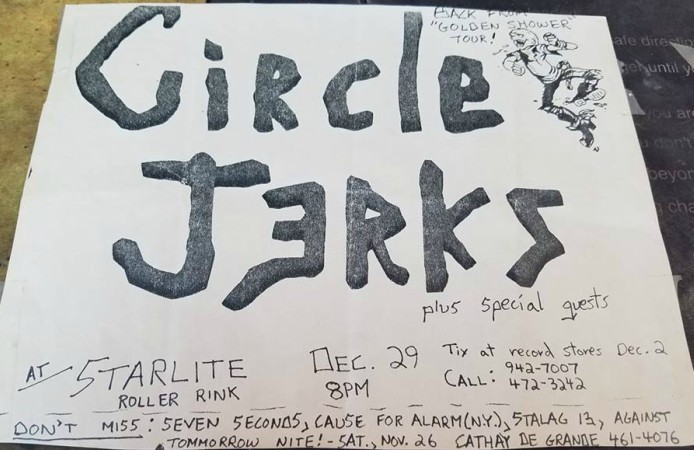 BACK FROM
"GOLDEN SHOWER"
TOUR!
CiRcle
JERKS
plus special guests
AT STARLITE
ROLLER RINK
DEC. 29
8PM
Tix at record stores Dec. 2
CALL: 942-7007
472-3242
DON'T MISS: SEVEN SECONDS, CAUSE FOR ALARM(N.Y.), STALAG 13, AGAINST
TOMMORROW NITE! - SAT., NOV. 26 CATHAY DE GRANDE 461-4076
afe directin
get until y
you are
u don't
beyon